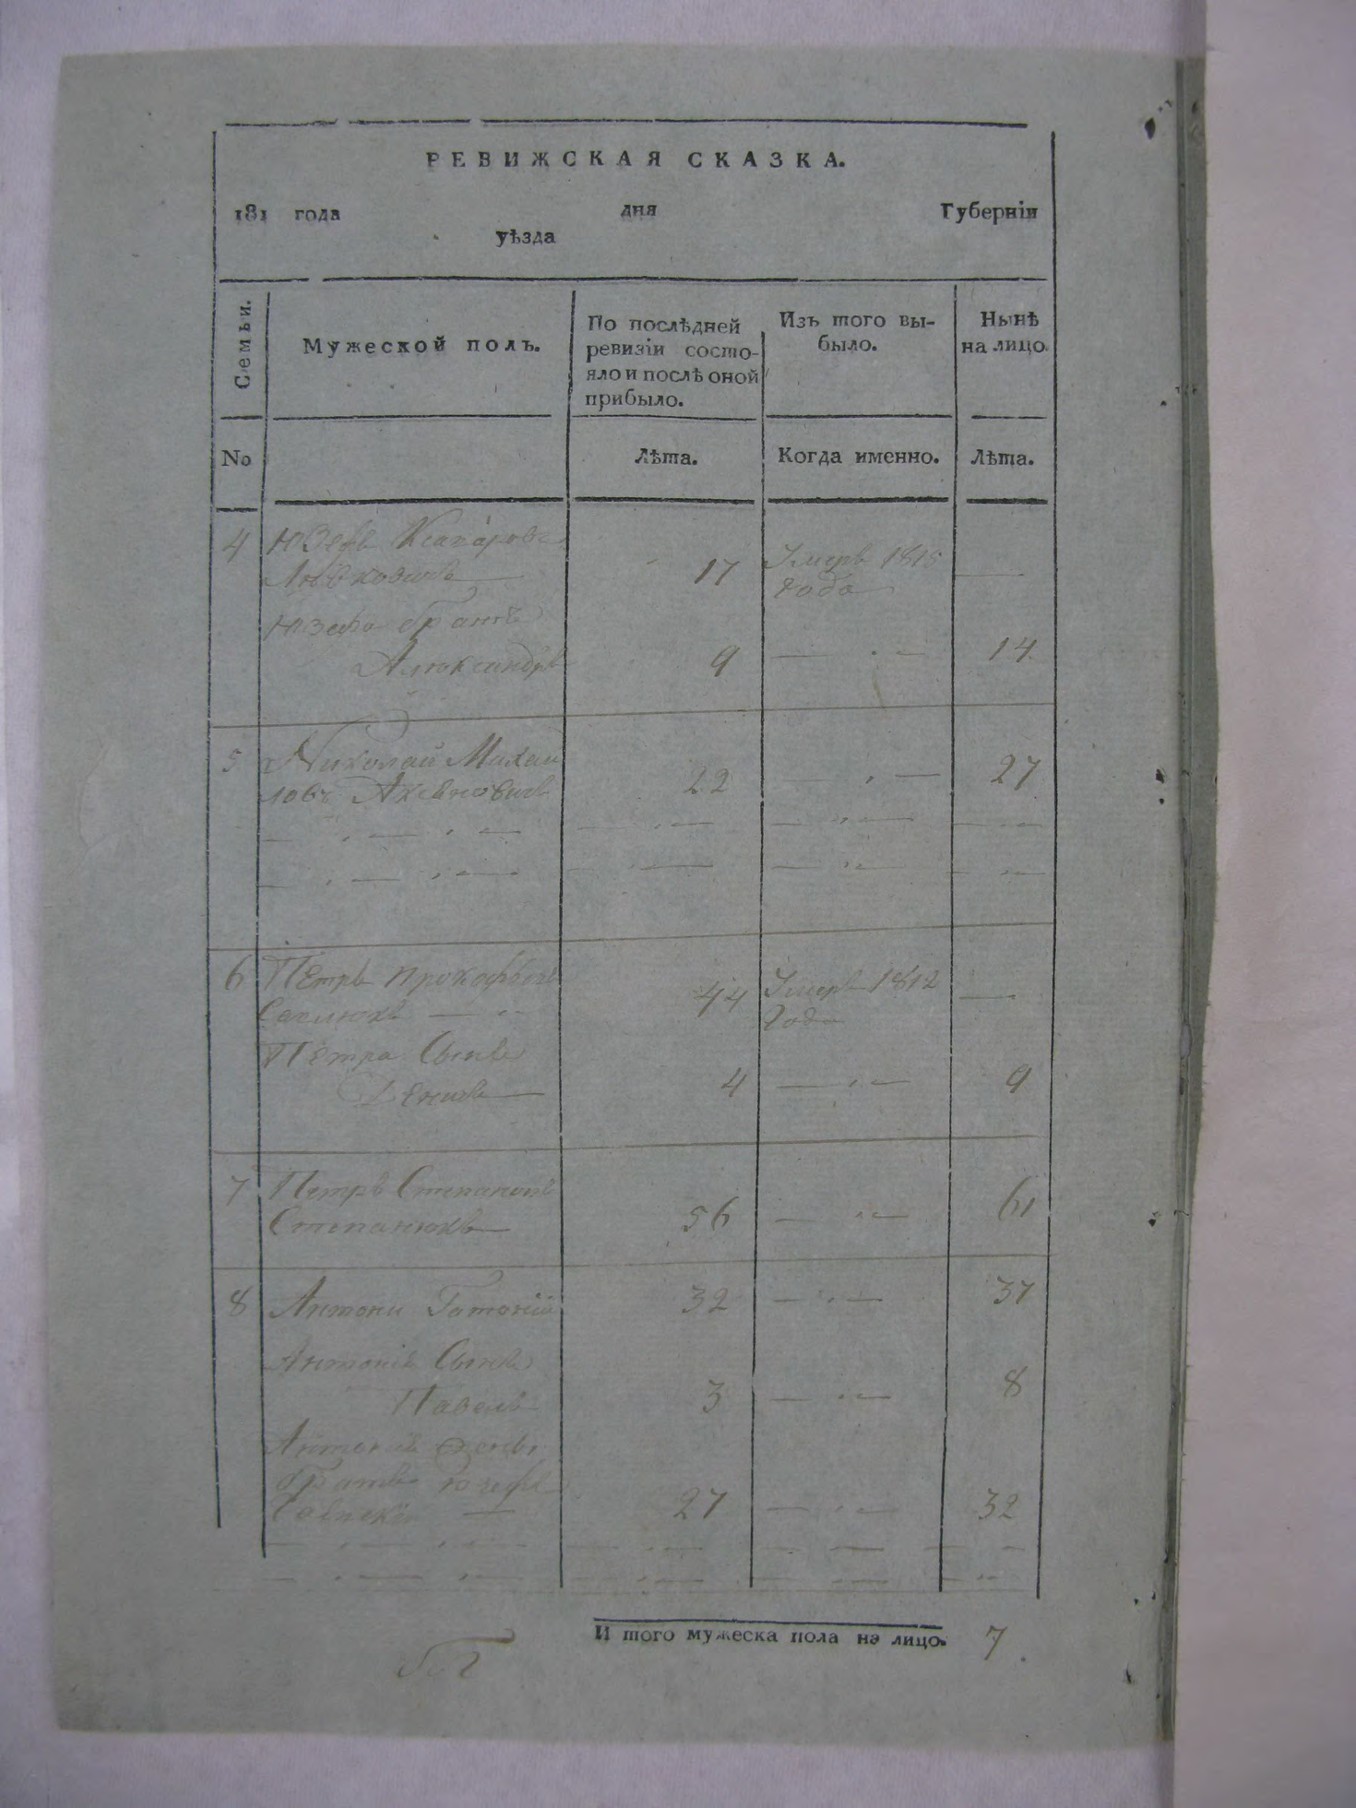 РЕВИЖСКАЯ СКАЗКА.
181 года дня Губернїи
уѣзда
Семьи.
Мужеской полъ.
По послѣдней
ревизїи состо-
яло и послѣ оной
прибыло.
Изъ того вы-
было.
Нынѣ
на лицо.
No
Лѣта.
Когда именно.
Лѣта.
4 Юзефъ
17 Умеръ 1815
года
Юзефа братъ
Александръ 9 14
5 Николай Михаи
ловъ 22 27
6 Петръ Прокофьевъ
44 Умеръ 1812
года
Петра Сынъ
Денисъ 4 9
7 Петръ Степановъ
Степанюкъ 56 61
8 Антони 32 37
Антонїя Сынъ
Павелъ 3 8
Антонїя
братъ Юзефъ
27 32
И того мужеска пола на лицо. 7